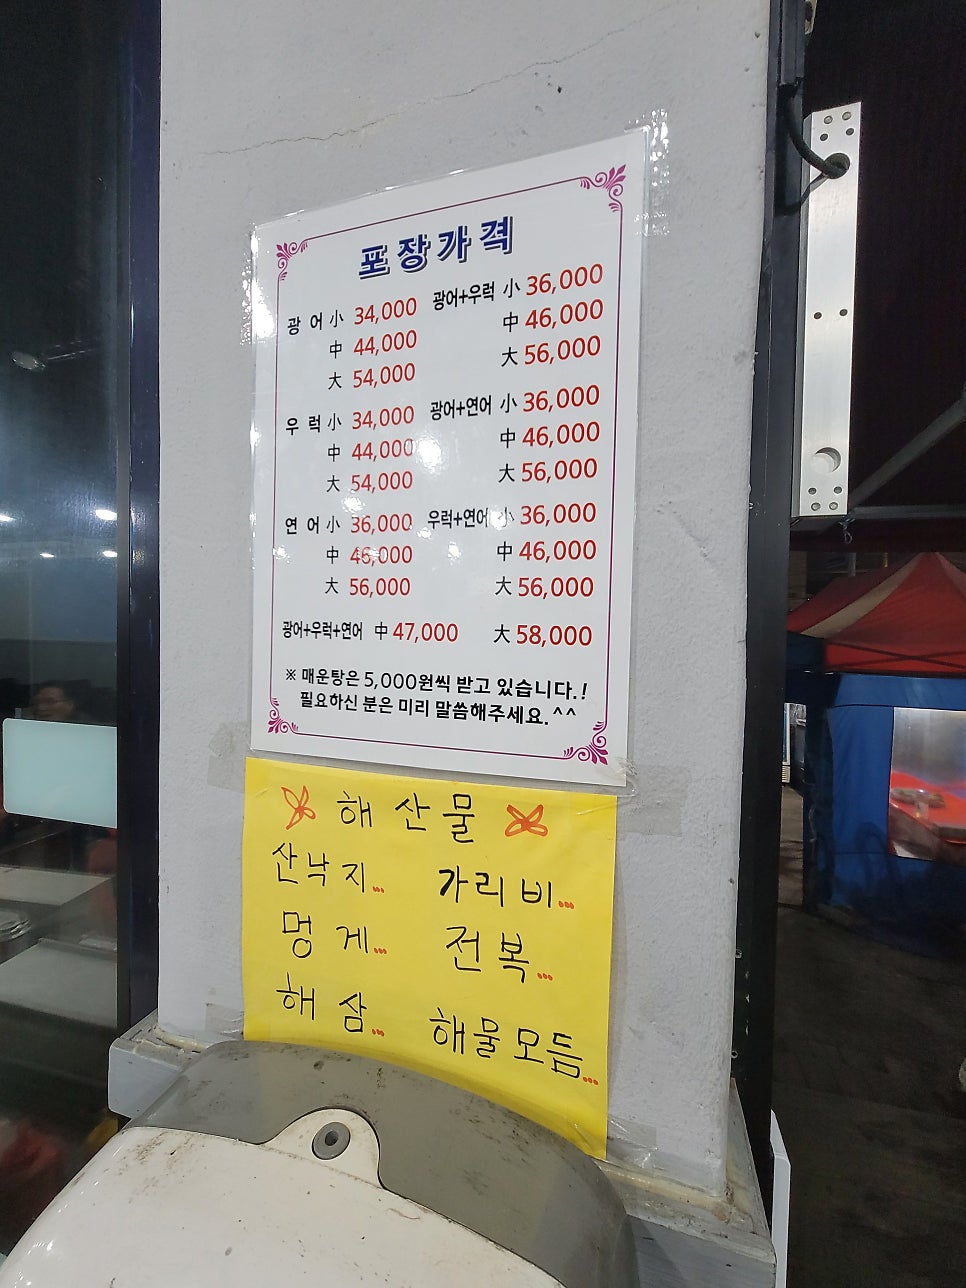 포장가격
광 어 小 34,000 광어+우럭 小 36,000
中 44,000 中 46,000
大 54,000 大 56,000
우 럭 小 34,000 광어+연어 小 36,000
中 44,000 中 46,000
大 54,000 大 56,000
연 어 小 36,000 우럭+연어 小 36,000
中 46,000 中 46,000
大 56,000 大 56,000
광어+우럭+연어 中 47,000 大 58,000
※ 매운탕은 5,000원씩 받고 있습니다.!
필요하신 분은 미리 말씀해주세요.^^
해산물
산낙지... 가리비...
멍게... 전복...
해삼... 해물모듬...